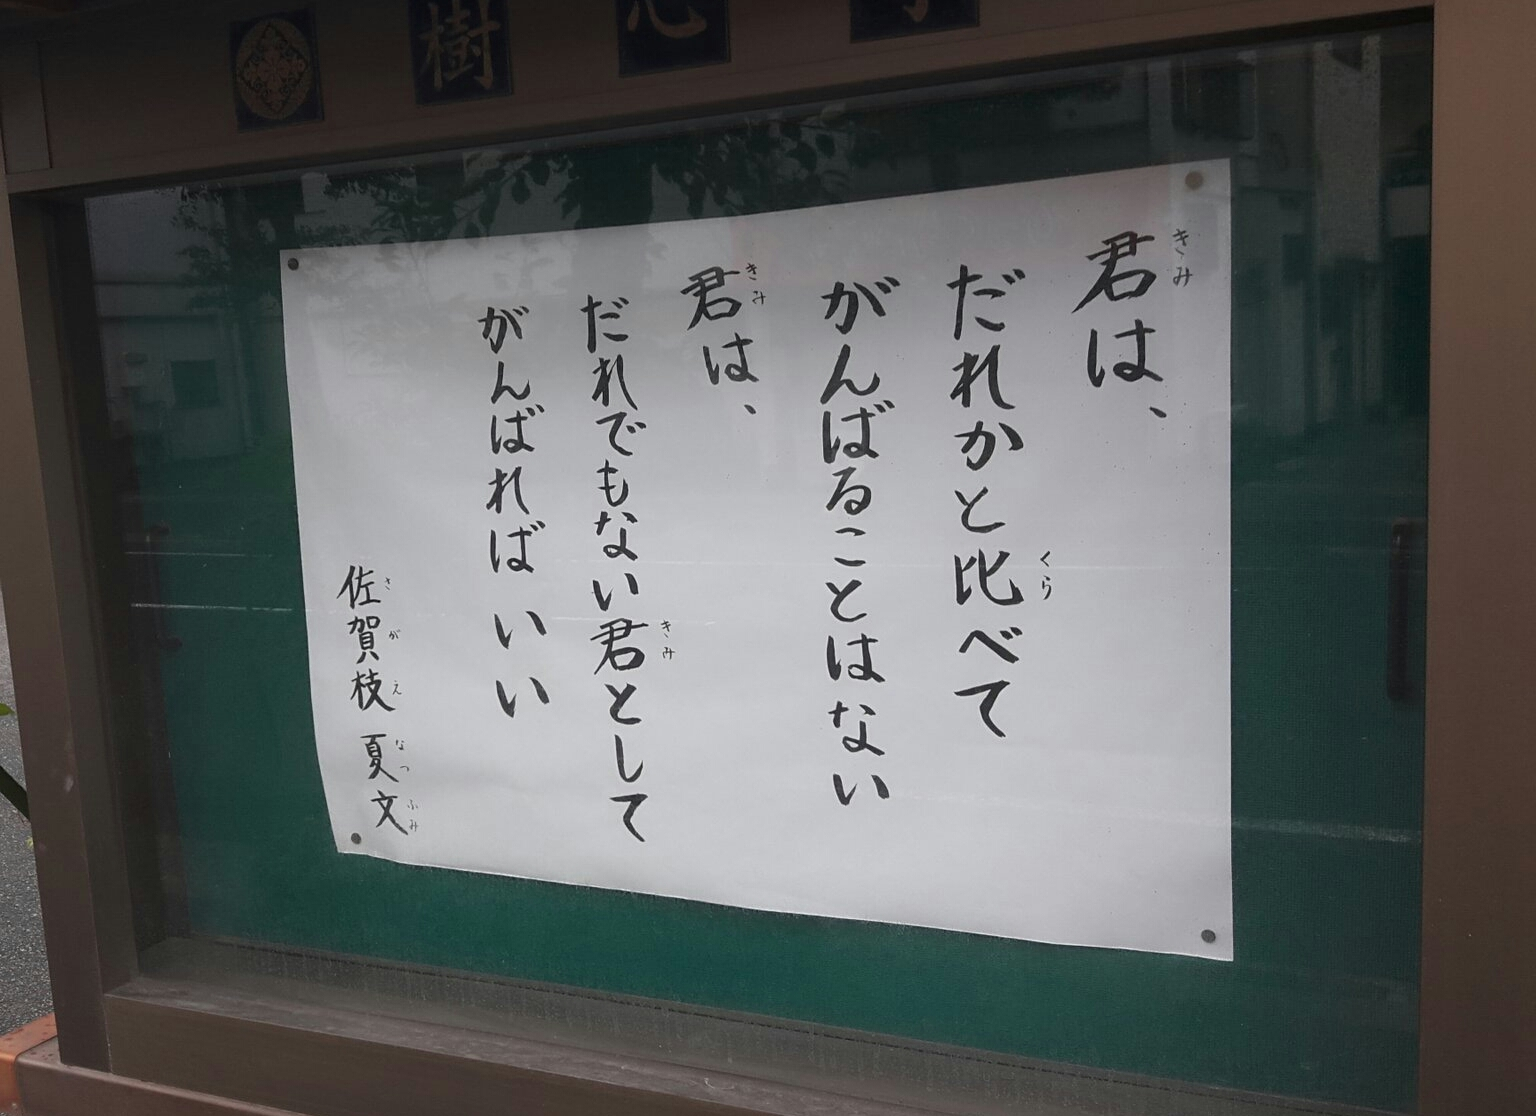 樹心寺
君は、
だれかと比べて
がんばることはない
君は、
だれでもない君として
がんばれば いい
佐賀枝 夏文
きみ
くら
きみ
きみ
さ が え なつ ふみ